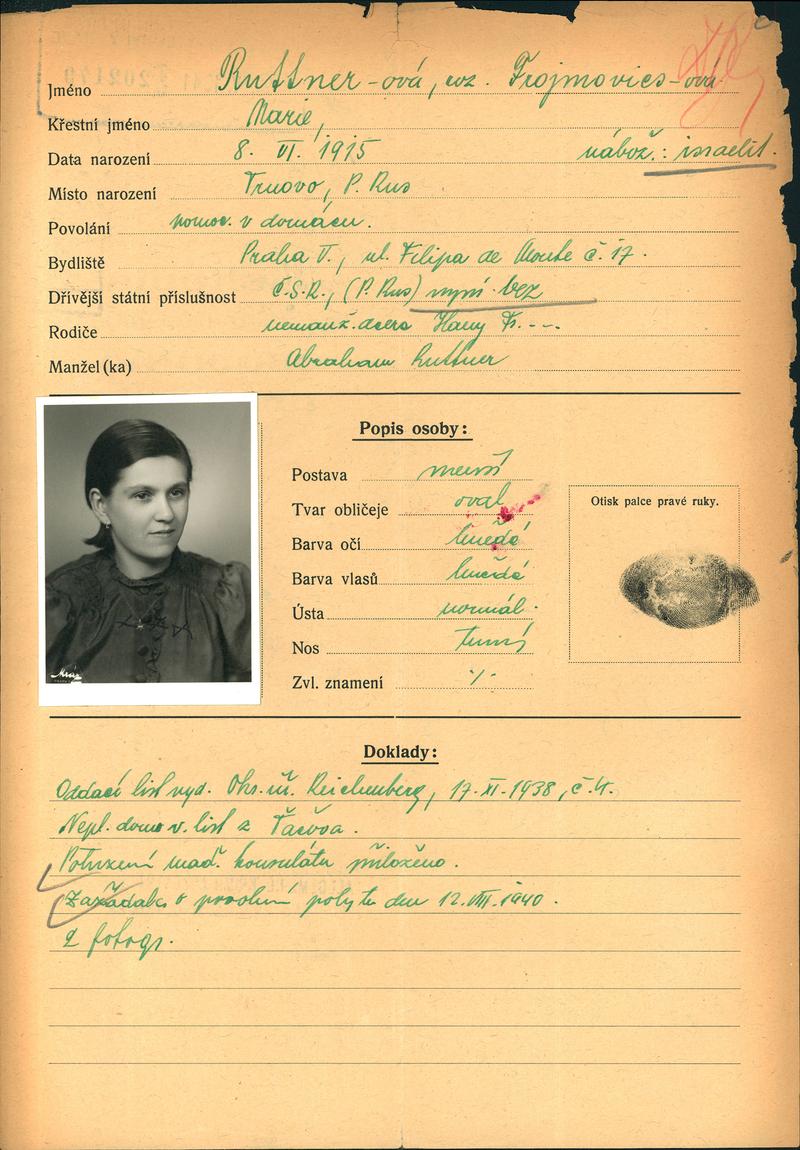 Jméno Ruttner-ová, roz. Frojmovics-ová
Křestní jméno Marie,
Data narození 8. VI. 1915 nábož.: israelit.
Místo narození Trnovo, P. Rus
Povolání pomoc. v domácn.
Bydliště Praha V., ul. Filipa de Monte č. 17.
Dřívější státní příslušnost Č.S.R., (P. Rus) nyní bez
Rodiče nemanž. dcera Hany Fr. - - -
Manžel (ka) Abraham Ruttner
Popis osoby:
Postava menší
Tvar obličeje oval
Otisk palce pravé ruky.
Barva očí hnědé
Barva vlasů hnědé
Ústa normál.
Nos
Zvl. znamení ./.
Mráz
Doklady:
Oddací list vyd. Okr. úř. Reichenberg, 17. XI. 1938, č.
Nepl. domov. list z Ťačova.
Potvrzení maď. konsulátu přiloženo.
o povolení pobytu dne 12. VIII. 1940.
2 fotogr.